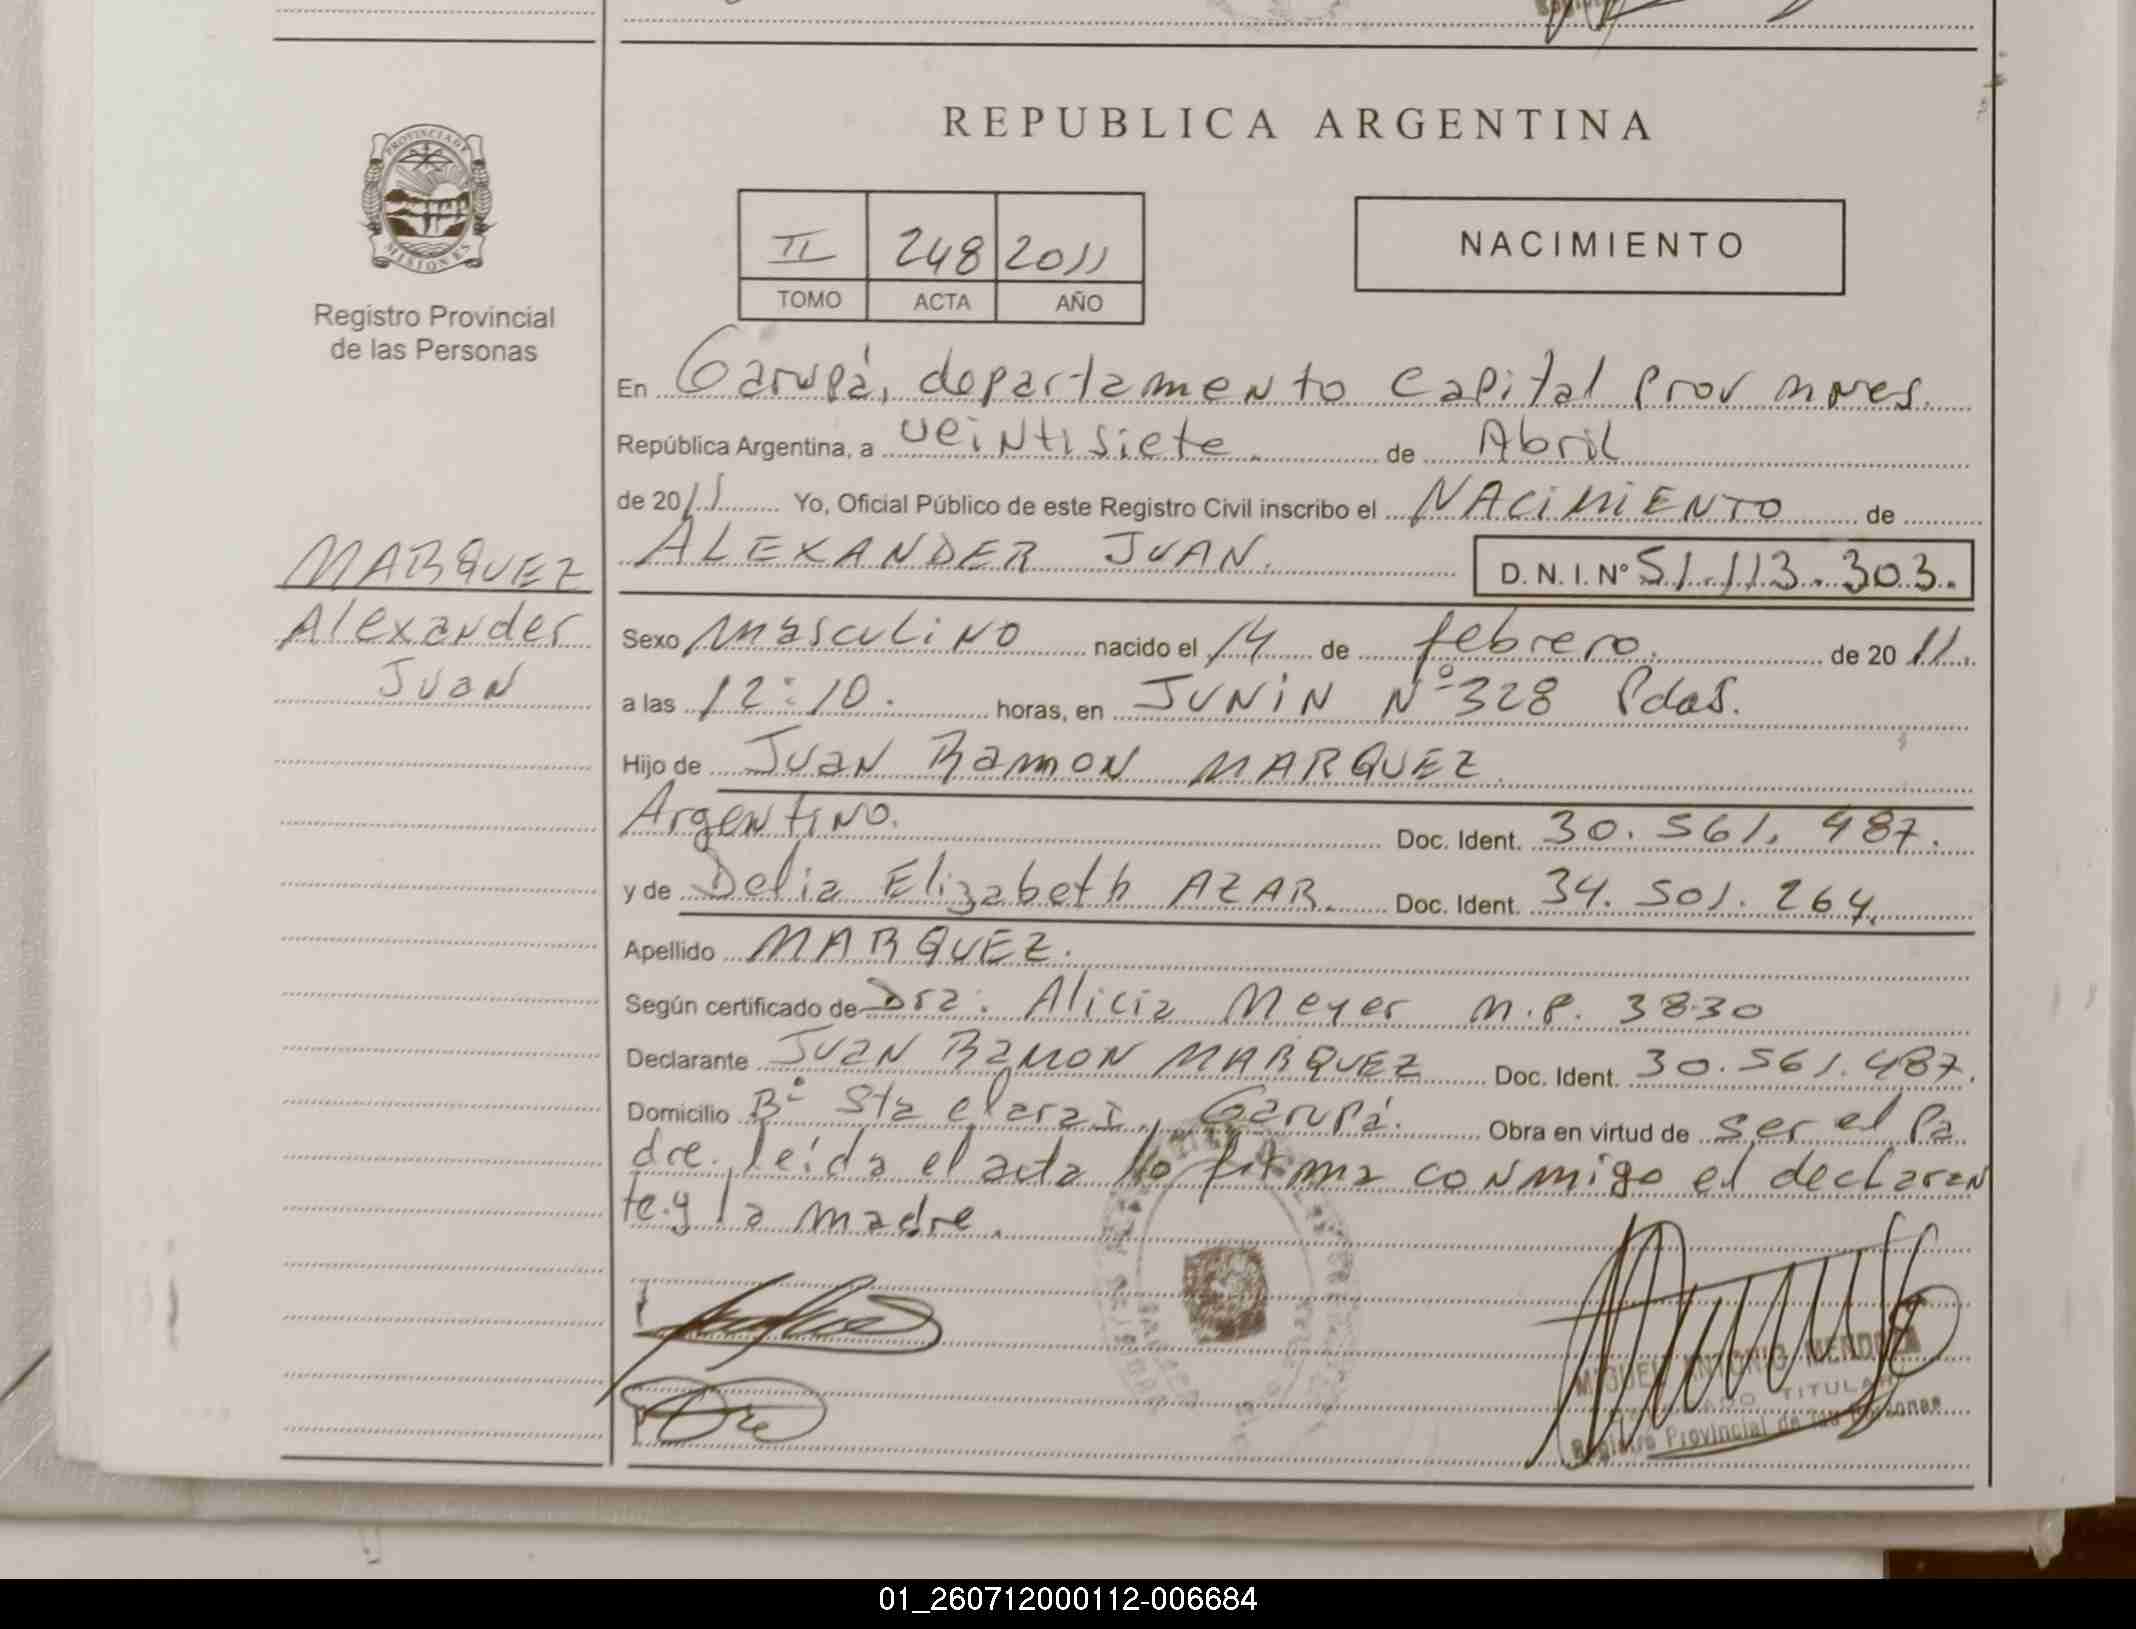 REPUBLICA ARGENTINA
PROVINCIA DE MISIONES
Registro Provincial
de las Personas
II 248 2011
TOMO ACTA AÑO
NACIMIENTO
En Garupá, departamento Capital Prov mnes.
República Argentina, a veintisiete. de Abril
de 2011 Yo, Oficial Público de este Registro Civil inscribo el NACIMIENTO de
ALEXANDER JUAN. D. N. I. Nº 51.113.303.
MARQUEZ
Alexander
Juan
Sexo Masculino nacido el 14 de febrero. de 2011.
a las 12:10. horas, en JUNIN Nº 328 Pdas.
Hijo de Juan Ramon MARQUEZ.
Argentino. Doc. Ident. 30.561.487.
y de Delia Elizabeth AZAR. Doc. Ident. 34.501.264.
Apellido MARQUEZ.
Según certificado de Dra. Alicia Meyer M.P. 3830
Declarante JUAN RAMON MARQUEZ Doc. Ident. 30.561.487.
Domicilio Bº Sta Clara I, Garupá. Obra en virtud de ser el Pa
dre. leída el acta la firma conmigo el declaran
te.y la madre.
MIGUEL ANTONIO MENDOZA
TITULAR
Registro Provincial de las Personas
01_260712000112-006684